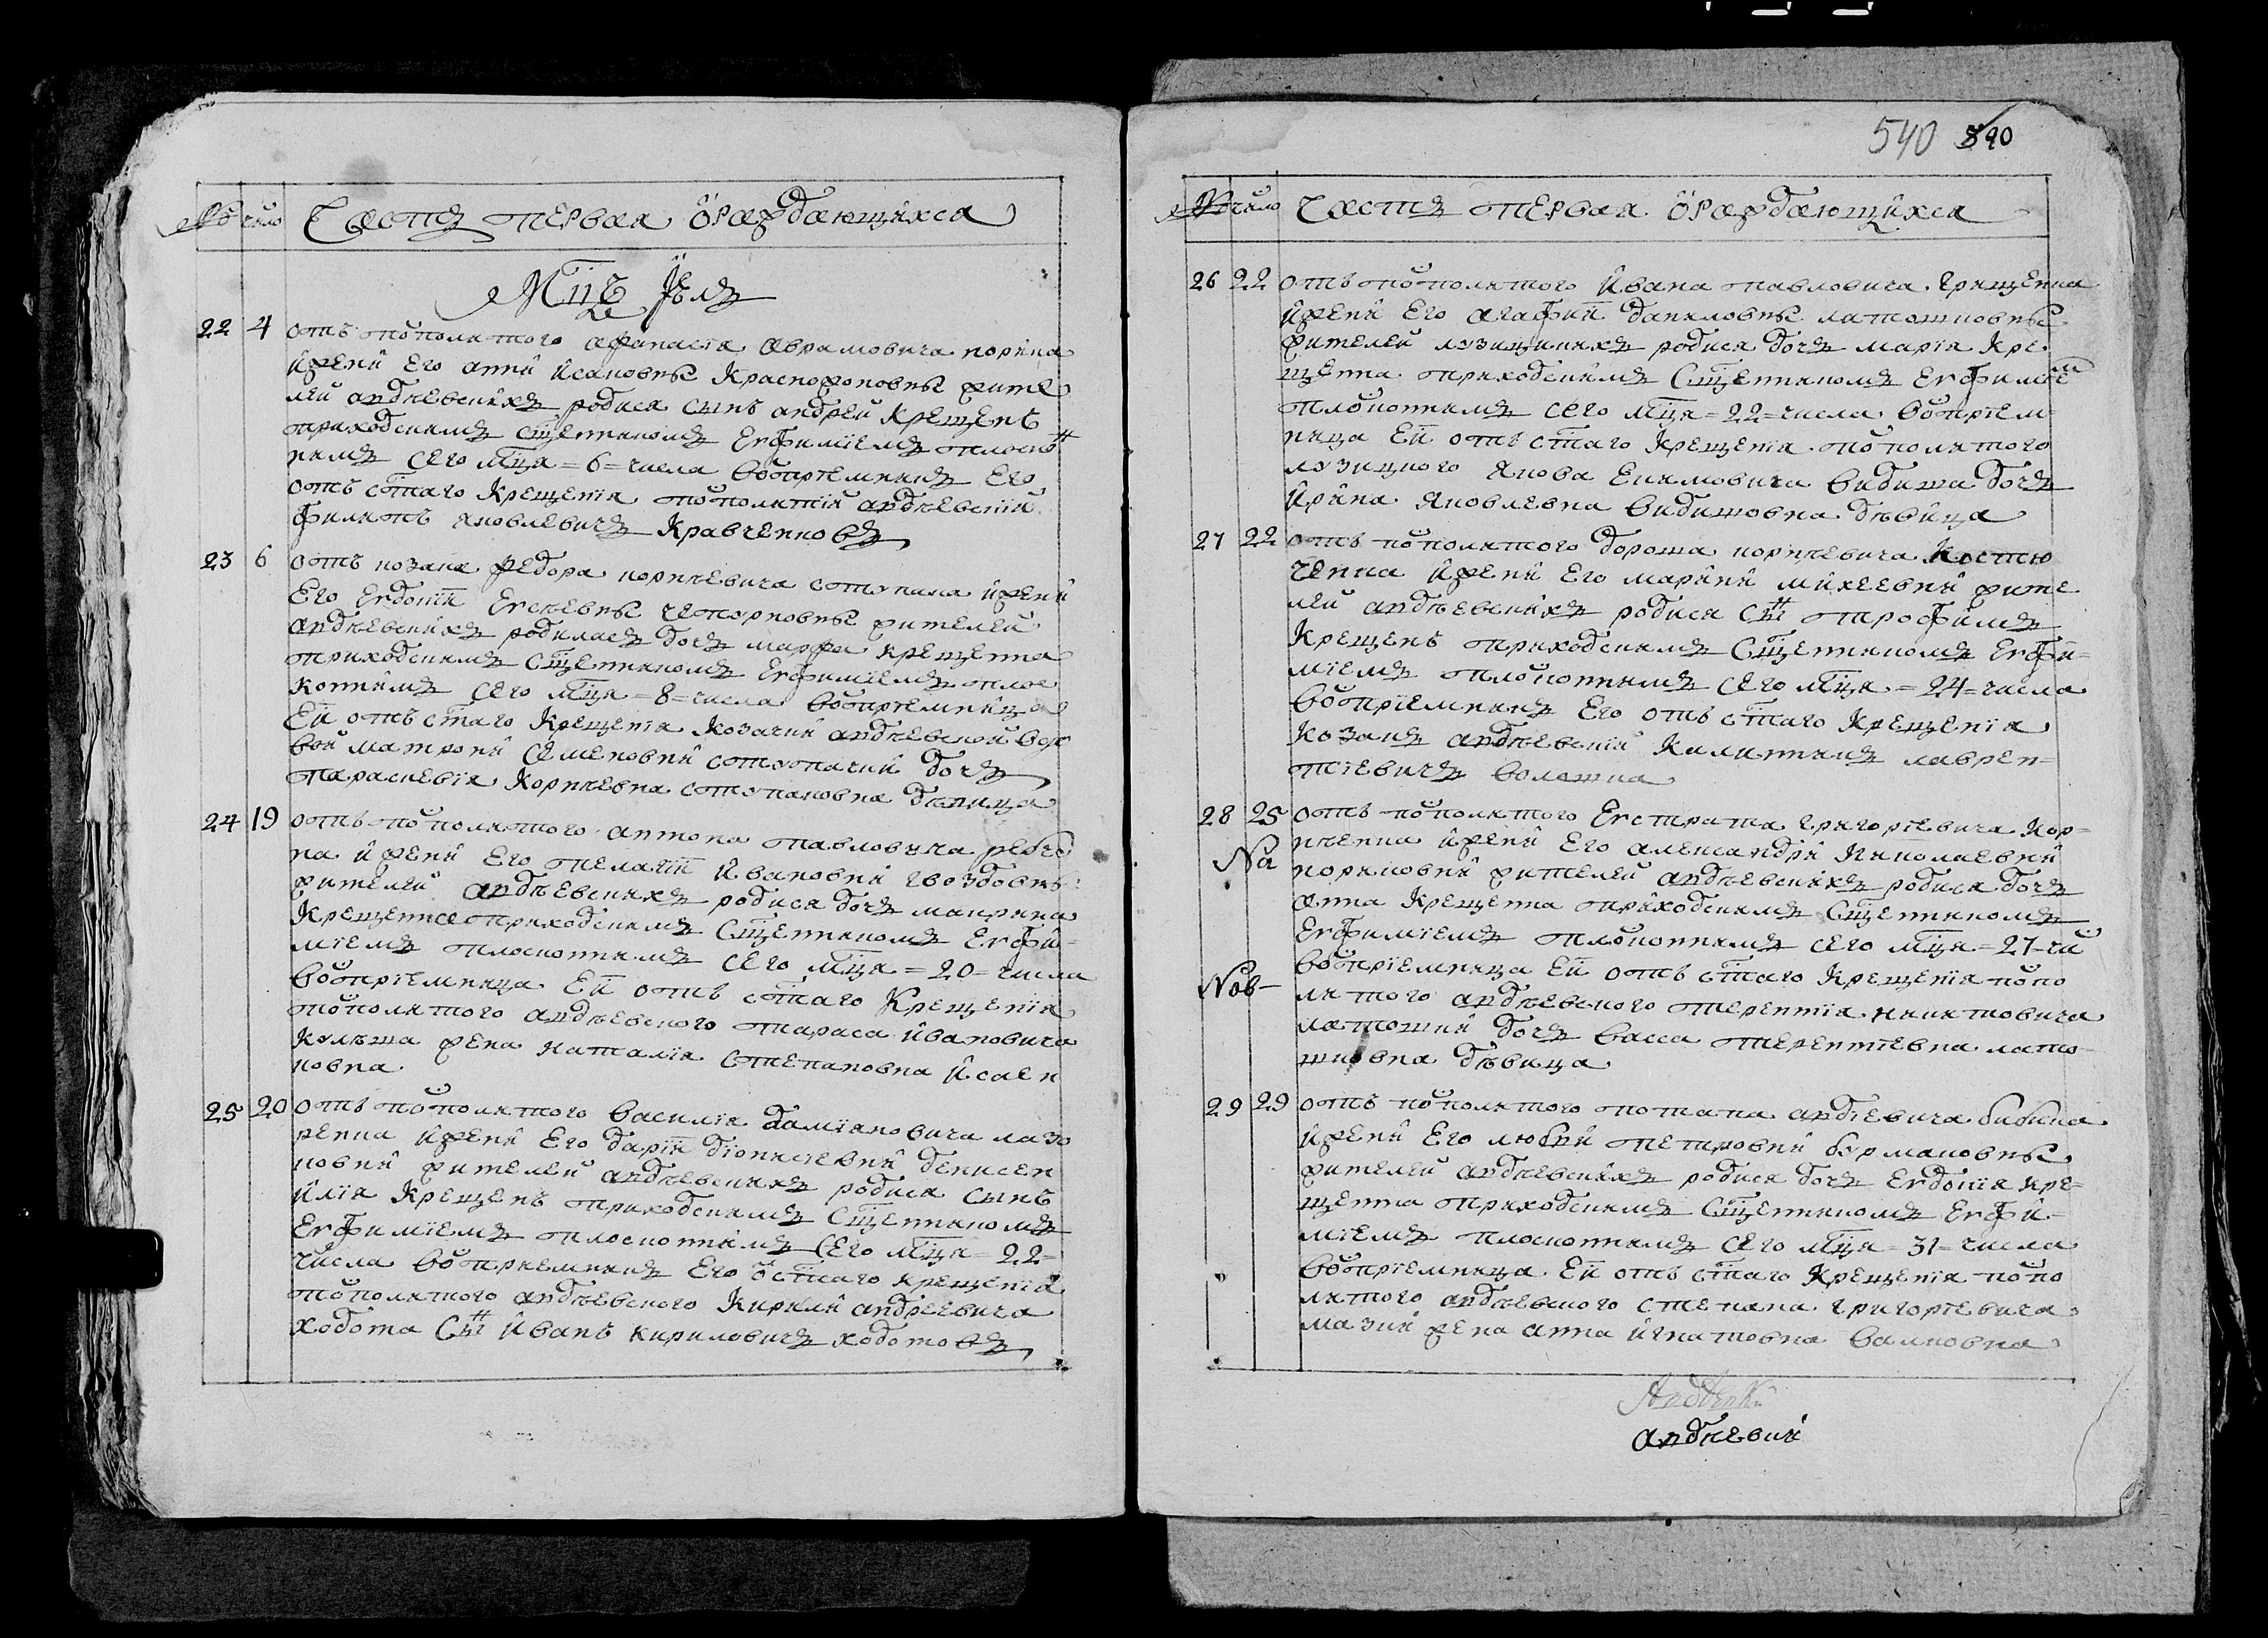 № число Часть первая ѽраждающихся
Мцъ Іюль
22 4 отъ пополитого афанасія Аврамовича
ижени Его анни Исаковны Красножоновны жите
лей андѣевскихъ родися сынъ андрей Крещенъ
приходскимъ сщенникомъ Евфиміемъ плоско
нимъ сего мца = 6 = числа воспріемникъ Его
отъ стаго Крещенія пополитій андѣевскій
филипъ яковлевичъ Кравченковъ
23 6 отъ козака федора корнѣевича ступака ижени
Его Евдокіи Евсѣевны жителей
андѣевскихъ родилась дочь марфа крещенна
приходскимъ сщенникомъ Евфиміемъ плос
контимъ сего мца = 8 = числа воспріемница
Ей отъ стаго Крещенія Козачки андѣевской вдо
вои матрони Семеновни ступачки дочь
параскевія Корнѣевна ступаковна дѣвица
24 19 отъ пополитого антона павловича
на ижени Его пелагіи Ивановни гвоздовны
жителей андѣевскихъ родися дочь макрина
Крещенна приходскимъ Сщенникомъ Евфи-
міемъ плосконтимъ сего мца = 20 = числа
воспріемница Ей отъ стаго Крещенія
пополитого андѣевского тараса Ивановича
жена наталія степановна Исаен
ковна
25 20 отъ пополитого Василія даміановича лазо
ренка ижени Его даріи діонисіевни денисен
ковни жителей андѣевскихъ родися сынъ
Илія Крещенъ приходскимъ Сщенникомъ
Евфиміемъ плосконтимъ Сего мца = 22 =
числа воспріемникъ Его ѽ стаго крещенія
пополитого андѣевского Кирили андреевича
ходота Снъ Иванъ кириловичъ ходотовъ
540 540
№ число Часть первая ѽраждающихся
26 22 отъ пополитого Ивана павловича Грищенка
ижени Его агафіи даниловны латошковны
жителей родися дочь марія Кре
щенна приходскимъ Сщенникомъ Евфиміем
плосконтимъ сего мца = 22 = числа воспріем-
ница Ей отъ стаго Крещенія пополитого
Якова Екимовича бибика дочь
Ирина Яковлевна бибиковна дѣвица
27 22 отъ пополитого дороша корнѣевича Костю
ченка ижени Его марини михеевни жите
лей андѣевскихъ родися Снъ трофимъ
Крещенъ приходскимъ Сщенникомъ Евфи-
міемъ плосконтимъ сего мца = 24 = числа
воспріемникъ Его отъ стаго Крещенія
Козакъ андѣевскій Калинникъ лаврен-
тіевичъ
28 25 отъ пополитого Евстрата григоріевича Кор-
нѣенка ижени Его александри Николаевни
жителей андѣевскихъ родися дочь
Na анна Крещенна приходскимъ Сщенникомъ
Евфиміемъ плосконтимъ сего мца = 27 = чи
воспріемница Ей отъ стаго Крещенія попо
Nов- литого андѣевского терентія никитовича
латошки дочь васса терентіевна лато
шковна дѣвица
29 29 отъ пополитого потапа андіевича бибика
ижени Его любви петровни бурмаковны
жителей андѣевскихъ родися дочь Евдокія кре-
щенна приходскимъ Сщенникомъ Евфи-
міемъ плосконтимъ сего мца = 31 = числа
воспріемница Ей отъ стаго Крещенія попо
литого андѣевского степана григоріевича
жена анна игнатовна
андѣевки